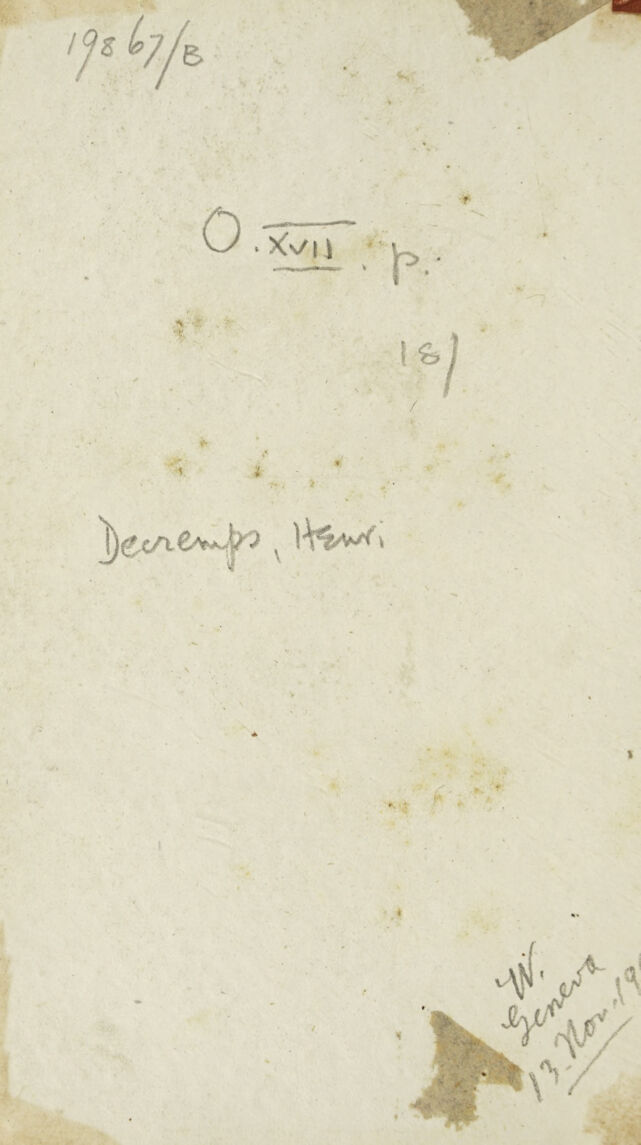 19867/B
O.XVII. p.
18/
Decremps, Henri
W.
Geneva
13. Nov. 19